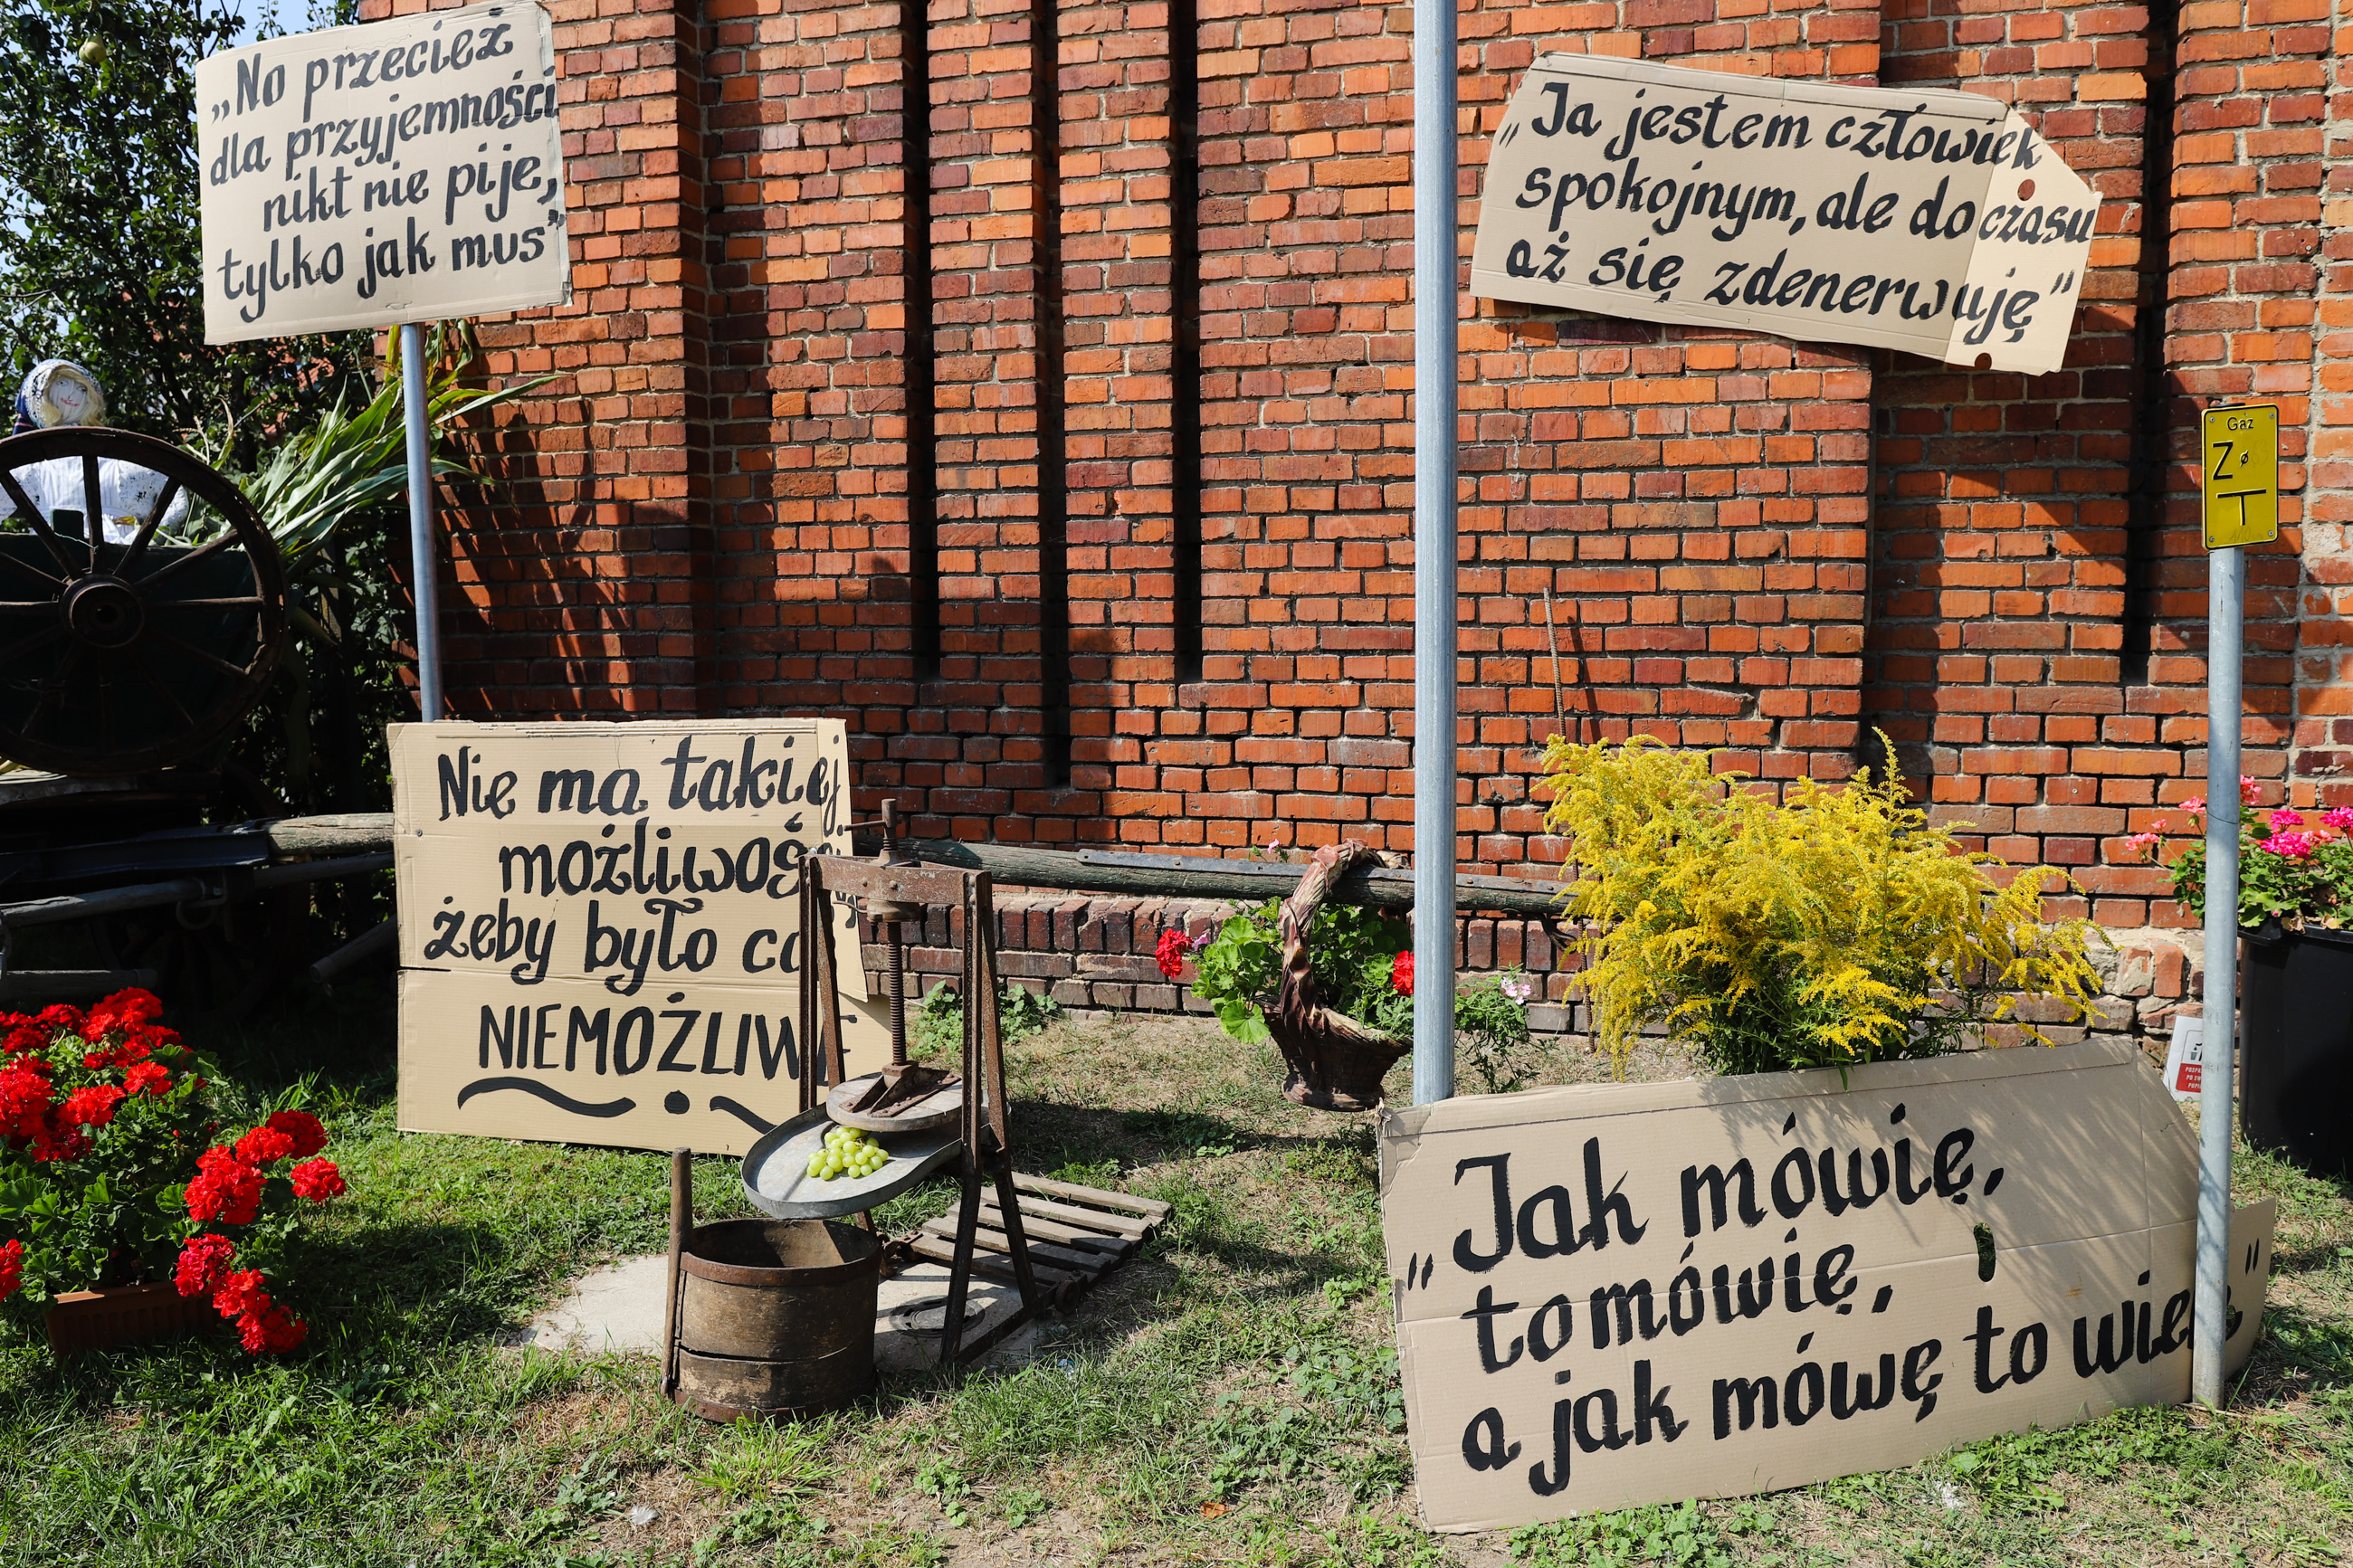 „No przecież
dla przyjemności
nikt nie pije,
tylko jak mus”
„Ja jestem człowiek
spokojnym, ale do czasu
aż się zdenerwuję”
Gaz
Z
T
Nie ma takiej
możliwoś
żeby było co
NIEMOŻLIWE
„Jak mówię,
to mówię,
a jak mówę to wiem”